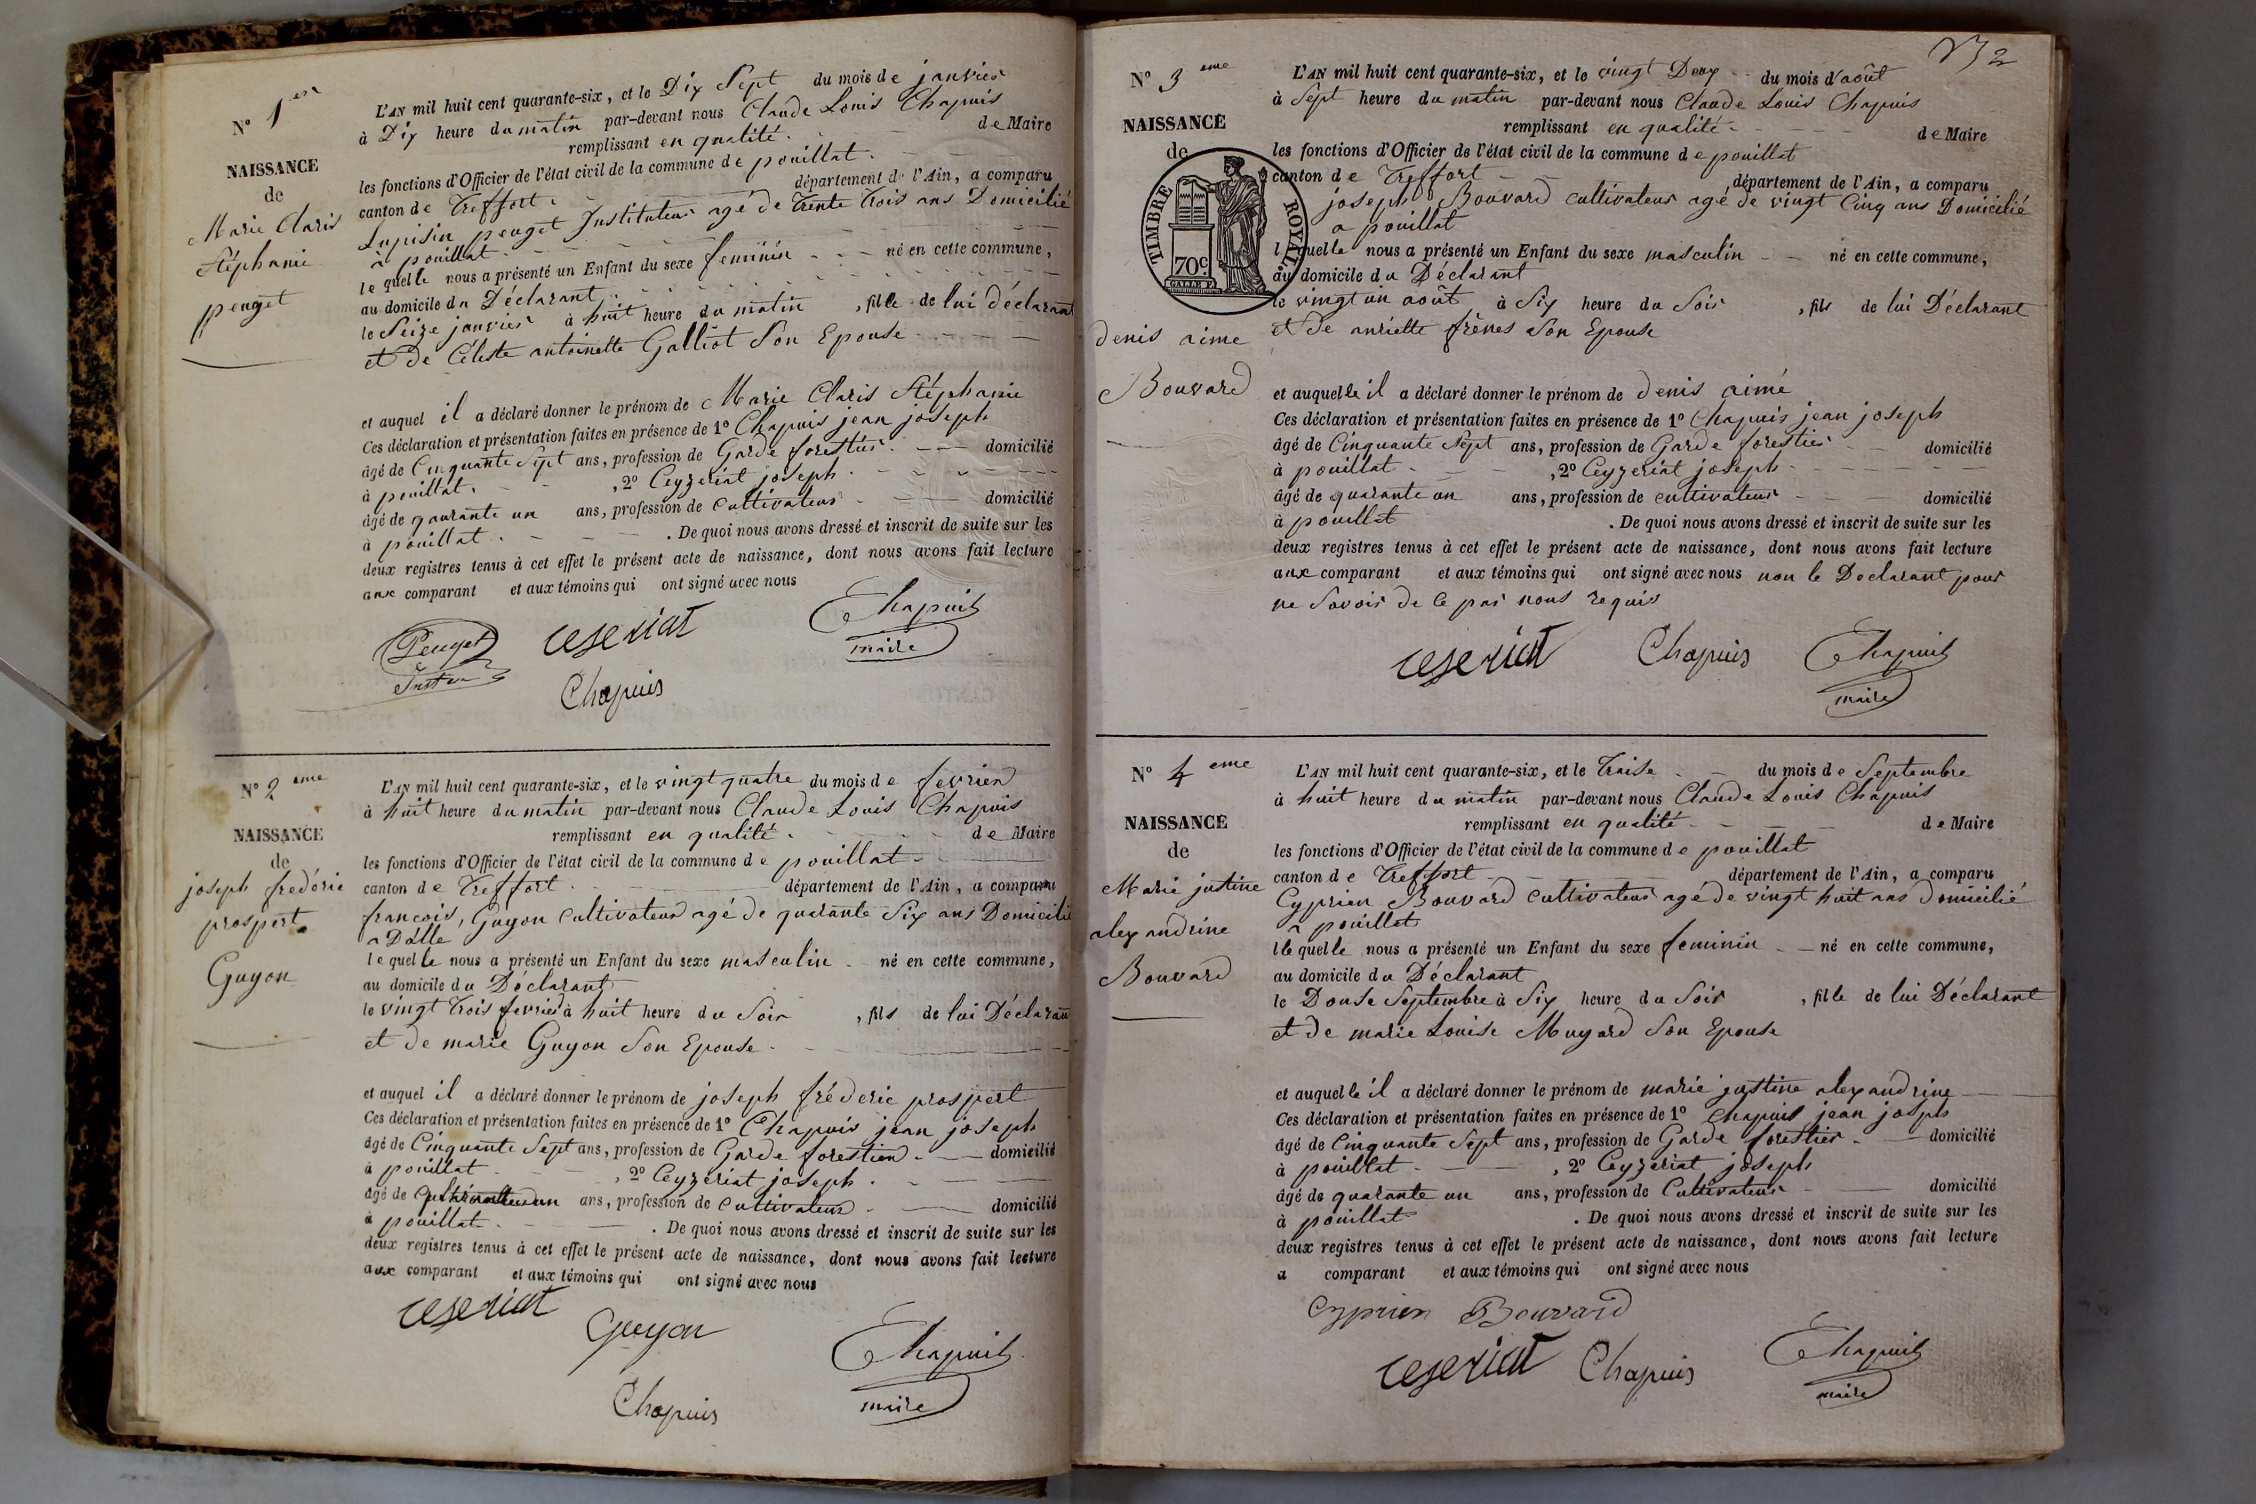 N° 1er
NAISSANCE
de
Marie Claris
Stéphanie
peuget
L'AN mil huit cent quarante-six, et le Dix Sept du mois de janvier
à Dix heure du matin par-devant nous Claude Louis Chapuis
remplissant en qualité de Maire
les fonctions d'Officier de l'état civil de la commune de pouillat
canton de Treffort département de l'Ain, a comparu
Lupisin peuget Instituteur agé de trente trois ans Domicilié
à pouillat
lequelle nous a présenté un Enfant du sexe feminin né en cette commune,
au domicile du Déclarant
le Seize janvier à huit heure du matin , fille de lui déclarant
et de Céleste antoinette Galliot Son Epouse
et auquel il a déclaré donner le prénom de Marie Claris Stéphanie
Ces déclaration et présentation faites en présence de 1° Chapuis jean joseph
âgé de Cinquante Sept ans, profession de Garde forestier domicilié
à pouillat , 2° Ceyzeriat joseph
âgé de qaurante un ans, profession de Cultivateur domicilié
à pouillat . De quoi nous avons dressé et inscrit de suite sur les
deux registres tenus à cet effet le présent acte de naissance, dont nous avons fait lecture
aux comparant et aux témoins qui ont signé avec nous
Peuget ceseriat Chapuis
maire
Chapuis
N° 2eme
NAISSANCE
de
joseph frederic
prospert
Guyon
L'AN mil huit cent quarante-six, et le vingt quatre du mois de fevrier
à huit heure du matin par-devant nous Claude Louis Chapuis
remplissant en qualité de Maire
les fonctions d'Officier de l'état civil de la commune de pouillat
canton de Treffort département de l'Ain, a comparu
francois Guyon Cultivateur agé de quarante Six ans Domicilié
a Dalle
lequelle nous a présenté un Enfant du sexe masculin né en cette commune,
au domicile du Déclarant
le vingt trois fevrier à huit heure du Soir , fils de lui Déclarant
et de marie Guyon Son Epouse
et auquel il a déclaré donner le prénom de joseph fréderic prospert
Ces déclaration et présentation faites en présence de 1° Chapuis jean joseph
âgé de Cinquante Sept ans, profession de Garde forestier domicilié
à pouillat , 2° Ceyzériat joseph
âgé de ans, profession de Cultivateur domicilié
à pouillat . De quoi nous avons dressé et inscrit de suite sur les
deux registres tenus à cet effet le présent acte de naissance, dont nous avons fait lecture
aux comparant et aux témoins qui ont signé avec nous
ceseriat Guyon Chapuis
maire
Chapuis
2
N° 3eme
NAISSANCE
de
TIMBRE ROYAL
70c
denis aime
Bouvard
L'AN mil huit cent quarante-six, et le vingt Deux du mois d'août
à Sept heure du matin par-devant nous Claude Louis Chapuis
remplissant en qualité de Maire
les fonctions d'Officier de l'état civil de la commune de pouillat
canton de Treffort département de l'Ain, a comparu
joseph Bouvard cultivateur agé de vingt Cinq ans Domicilié
a pouillat
lequelle nous a présenté un Enfant du sexe masculin né en cette commune,
au domicile du Déclarant
le vingt un août à Six heure du Soir , fils de lui Déclarant
et de anriette frènes Son Epouse
et auquelle il a déclaré donner le prénom de denis aimé
Ces déclaration et présentation faites en présence de 1° Chapuis jean joseph
âgé de Cinquante Sept ans, profession de Garde forestier domicilié
à pouillat , 2° Ceyzeriat joseph
âgé de quarante un ans, profession de cultivateur domicilié
à pouillat . De quoi nous avons dressé et inscrit de suite sur les
deux registres tenus à cet effet le présent acte de naissance, dont nous avons fait lecture
aux comparant et aux témoins qui ont signé avec nous non le Declarant pour
ne Savoir de Ce par nous requis
ceseriat Chapuis Chapuis
maire
N° 4eme
NAISSANCE
de
Marie justine
alexandrine
Bouvard
L'AN mil huit cent quarante-six, et le Traise du mois de Septembre
à huit heure du matin par-devant nous Claude Louis Chapuis
remplissant en qualité de Maire
les fonctions d'Officier de l'état civil de la commune de pouillat
canton de Treffort département de l'Ain, a comparu
Cyprien Bouvard Cultivateur agé de vingt huit ans domicilié
a pouillat
lequelle nous a présenté un Enfant du sexe feminin né en cette commune,
au domicile du Déclarant
le Douse Septembre à Six heure du Soir , fille de lui Déclarant
et de marie Louise Muyard Son Epouse
et auquelle il a déclaré donner le prénom de marie justine alexandrine
Ces déclaration et présentation faites en présence de 1° Chapuis jean joseph
âgé de Cinquante Sept ans, profession de Garde forestier domicilié
à pouillat , 2° Ceyzeriat joseph
âgé de quarante un ans, profession de Cultivateur domicilié
à pouillat . De quoi nous avons dressé et inscrit de suite sur les
deux registres tenus à cet effet le présent acte de naissance, dont nous avons fait lecture
a comparant et aux témoins qui ont signé avec nous
Cyprien Bouvard
ceseriat Chapuis Chapuis
maire